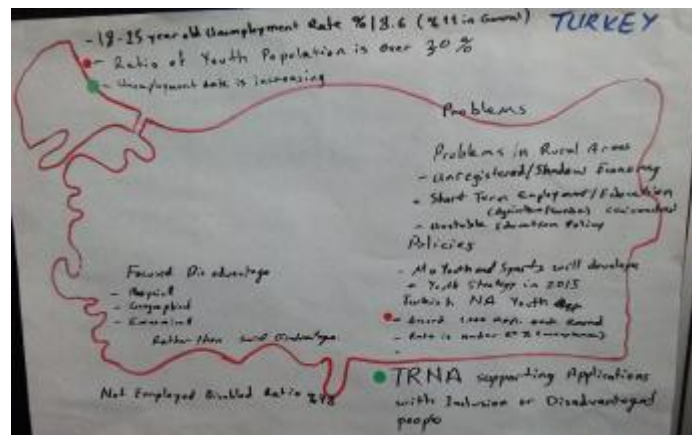 - 18-25 year old Unemployment Rate %18.6 (%11 in General)
TURKEY
- Ratio of Youth Population is over 30 %
- Unemployment rate is increasing
Problems
Problems in Rural Areas
- Unregistered/Shadow Economy
- Short Term Employment/Education
- Unstable Education Policy
Policies
- Mo Youth and Sports will develope
a Youth Strategy in 2013
Turkish NA Youth App
- Around 1.000 App. each Round
- Rate is under
Focused Disadvantage
- Geographical
- Economical
Rather than Disadvantage
Not Employed Disabled Ratio %48
TRNA supporting Applications
with Inclusion or Disadvantaged
people